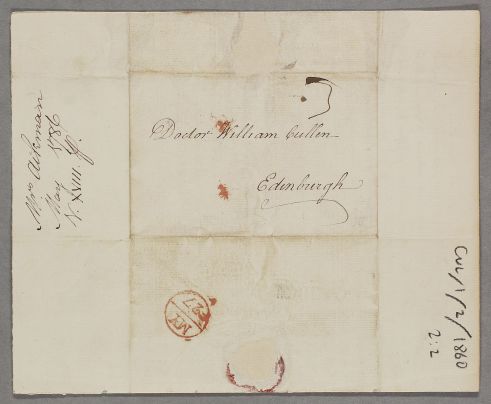 Mrs Aikman
May 1786
V. XVIII. p.
3
Doctor William Cullen
Edinburgh
MY
27
CUL/1/2/1860
2:2